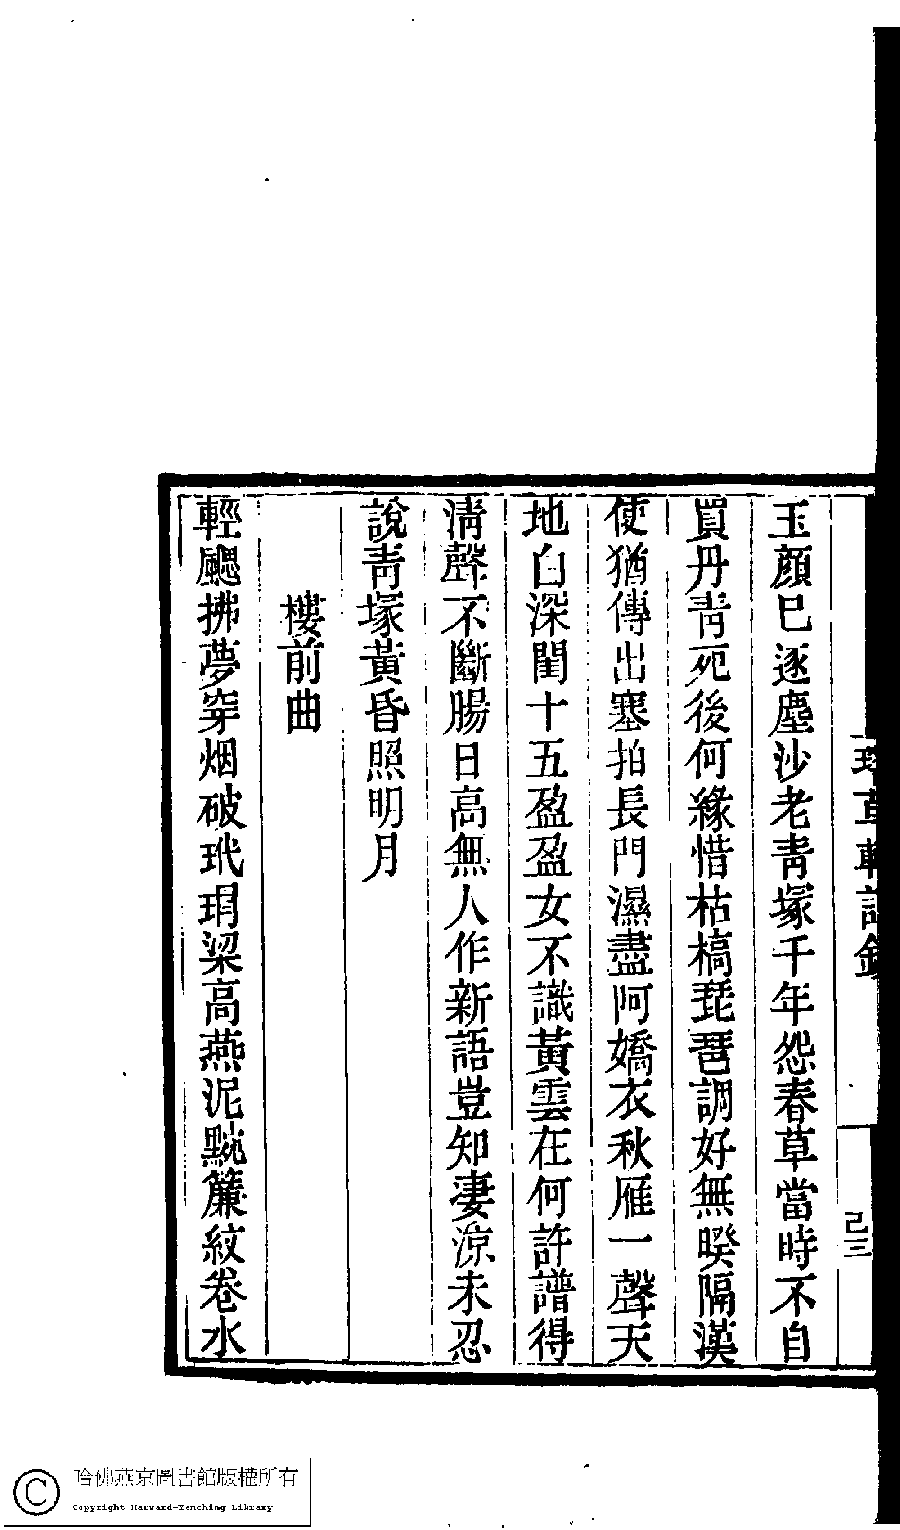 玉顏巳逐塵沙老靑塚千年怨春草當時不自
買丹靑死後何緣惜枯槁琵琶調好無暌隔漢
使猶傳出塞拍長門濕盡阿嬌衣秋雁一聲天
地白深閨十五盈盈女不識黃雲在何許譜得
淸聲不斷腸日高無人作新語豈知淒涼未忍
說靑塚黃昏照明月
樓前曲
輕颸拂夢穿烟破玳瑁梁高燕泥黦簾紋卷水
己三
哈佛燕京圖書館版權所有
Copyright Harvard-Yenching Library